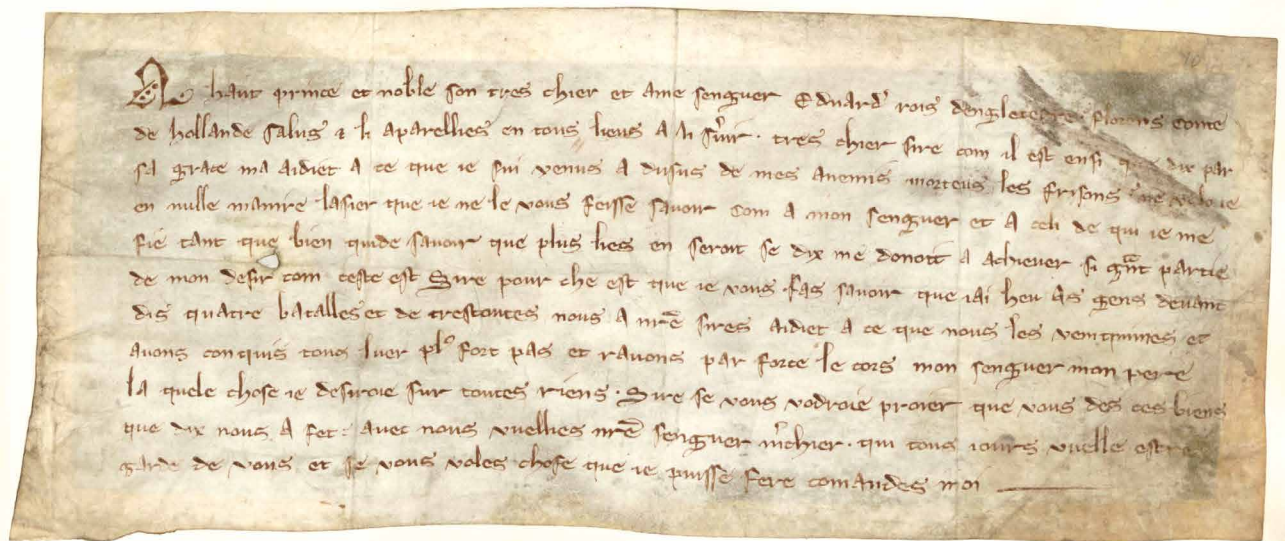 A haut prince et noble son tres chier et ame senguer Edward' rois dengleterre florens conte
de hollande salus & li aparellies en tous liens a li s'uir · tres chier sire com il est ensi que dix par
sa grace ma aidiet a ce que ie sui venus a dusus de mes anemis morteus les frisons ne veloie
en nulle maniere lasier que ie ne le vous feisse savoir com a mon senguer et a celi de qui ie me
fie tant que bien quide savoir que plus lies en seroit se dix me donoit a achiever si g̃nt partie
de mon desir com ceste est Sire pour che est que ie vous fas savoir que iai heu as gens devant
dis quatre batalles et de trestoutes nous a nr̃e sires aidiet a ce que nous les venquimes et
avons conquis tous luer pl⁹ fort pas et ravons par force le cors mon senguer mon pere
la quele chose ie desiroie sur toutes riens · Sire se vous vodroie proier que vous des ces biens
que dix nous a fet · avec nous vuellies nr̃e senguer m'chier · qui tous iours vuelle estre
garde de vous et se vous voles chose que ie puisse fere comandes moi